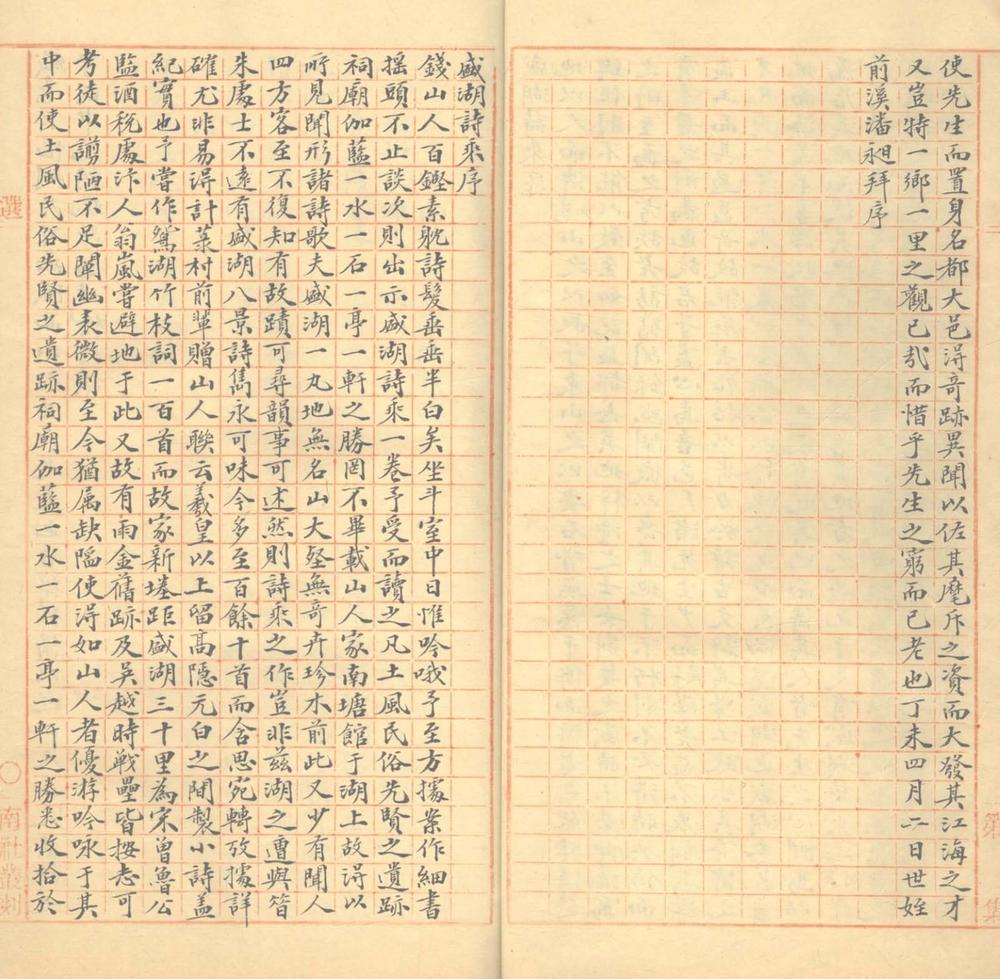 使先生而置身名都大邑得奇跡異聞以佐其麾斥之資而大發其江海之才
又豈特一鄉一里之觀已㢤而惜乎先生之窮而已老也丁未四月二日世姪
前溪潘昶拜序
盛湖詩乘序
錢山人百鏗素躭詩髮垂垂半白矣坐斗室中日惟吟哦予至方據案作細書
搖頭不止談次則出示盛湖詩乘一卷予受而讀之凡土風民俗先賢之遺跡
祠廟伽藍一水一石一亭一軒之勝罔不畢載山人家南塘館于湖上故得以
所見聞形諸詩歌夫盛湖一丸地無名山大壑無奇卉珍木前此又少有聞人
四方客至不復知有故蹟可尋韻事可述然則詩乘之作豈非兹湖之遭與昔
朱處士不遠有盛湖八景詩雋永可味今多至百餘十首而含思宛轉攷據詳
確尤非易得計菉村前輩贈山人聯云羲皇以上留高隱元白之間製小詩盖
紀實也予嘗作鴛湖竹枝詞一百首而故家新塍距盛湖三十里為宋曾魯公
監酒税處汴人翁嵐嘗避地于此又故有雨金舊跡及吳越時戰壘皆按志可
考徒以謭陋不足闡幽表微則至今猶属缺陷使得如山人者優游吟咏于其
中而使土風民俗先賢之遺跡祠廟伽藍一水一石一亭一軒之勝悉收拾於
選
〇
南社叢刻
第
集